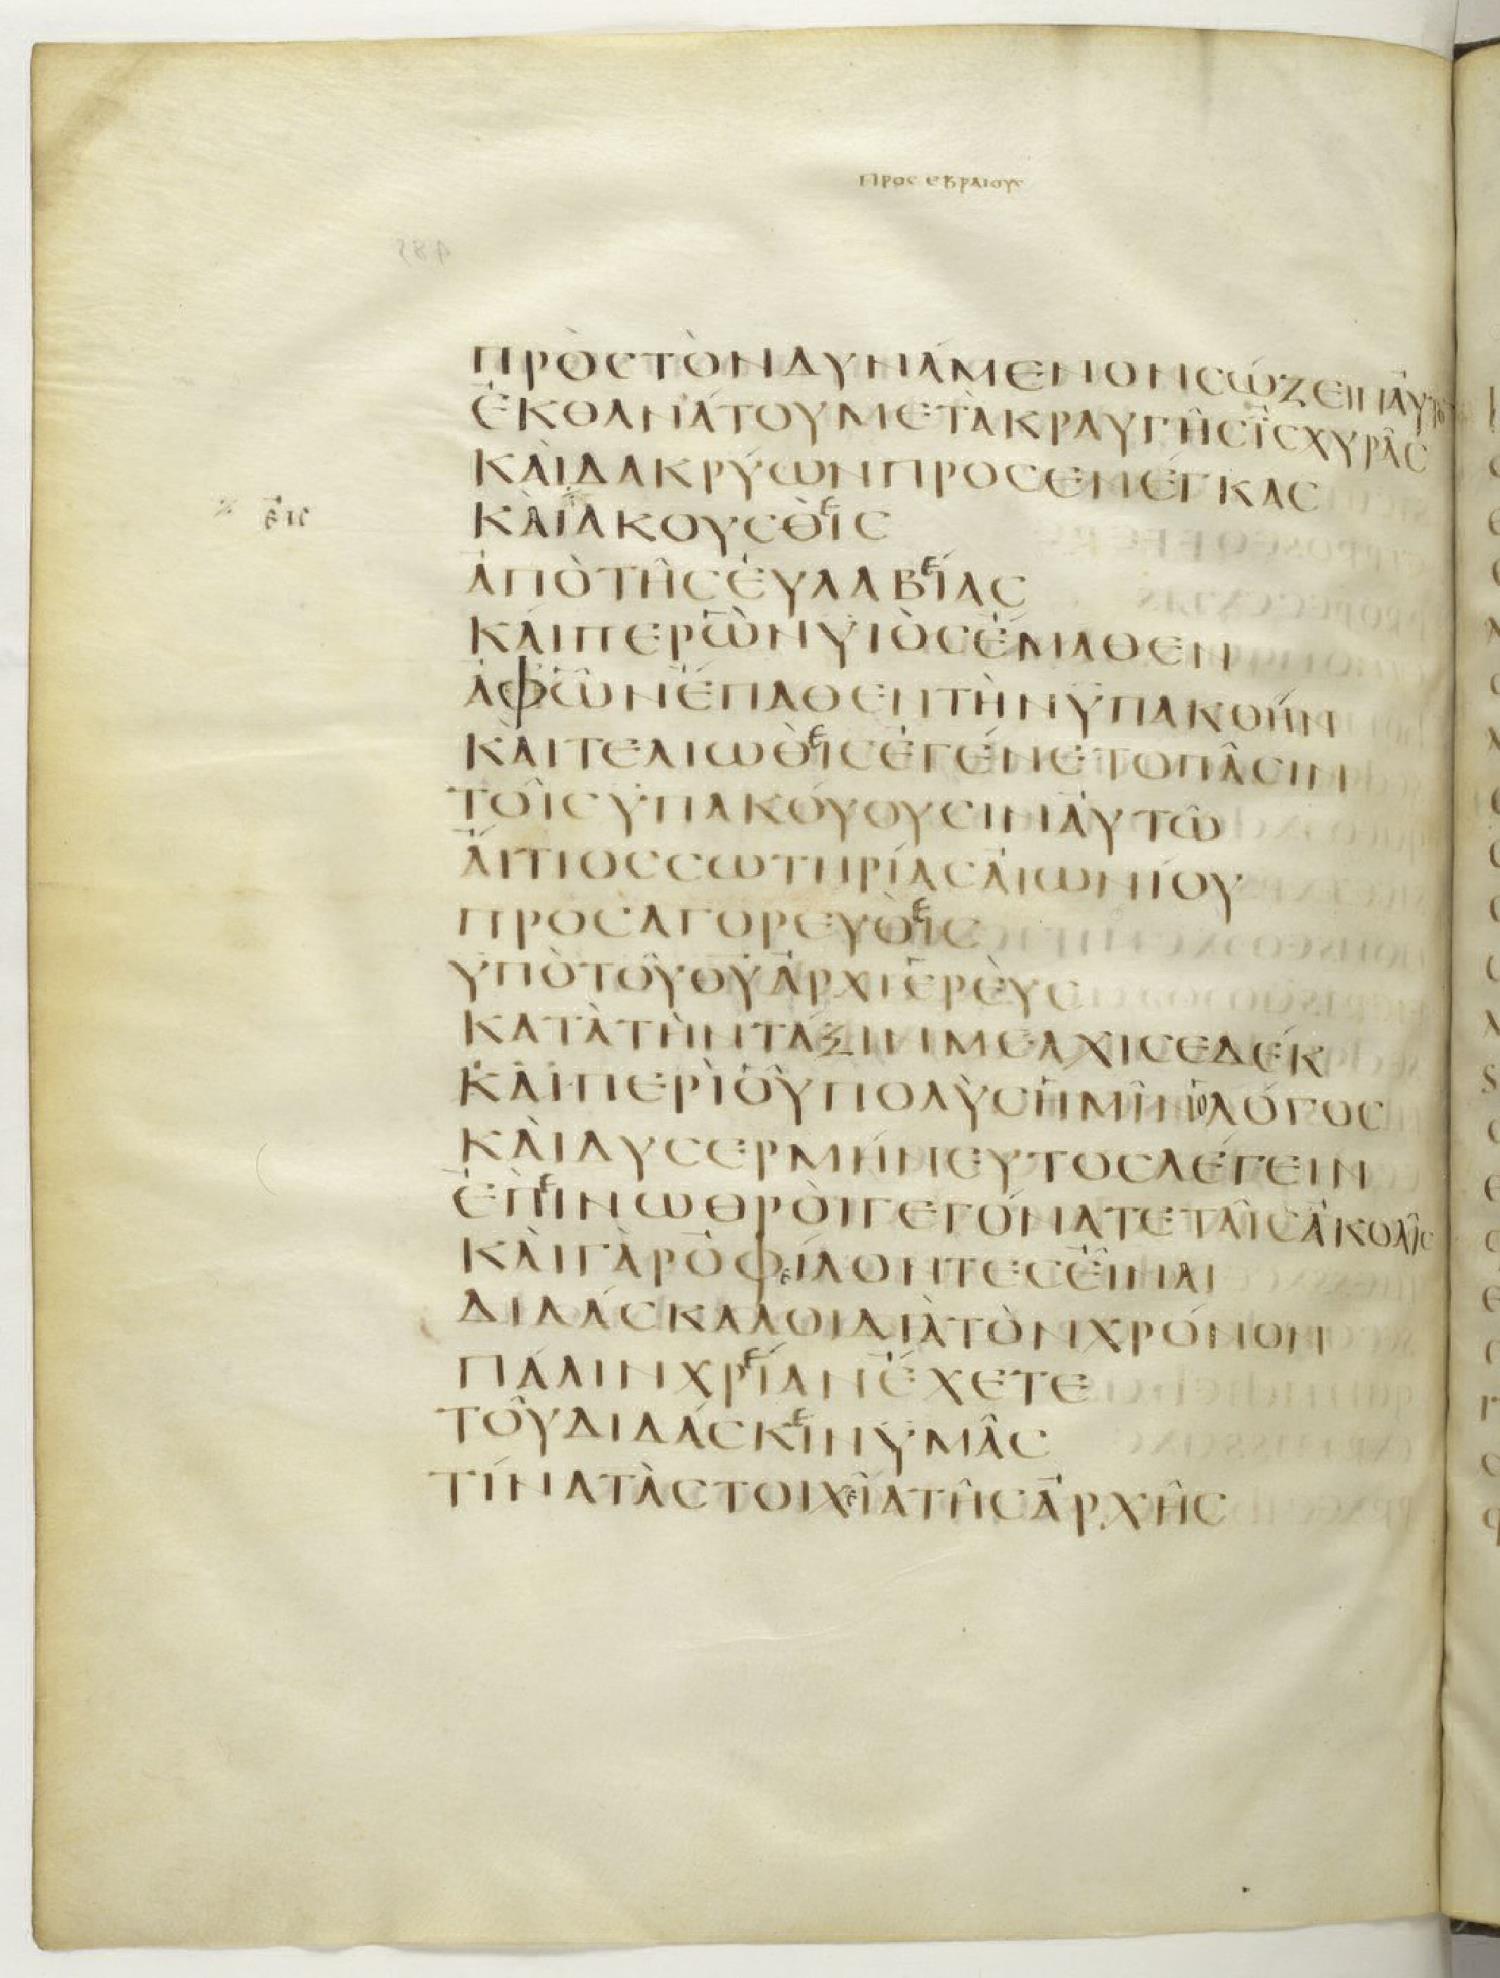 ΠΡΟΣ ΕΒΡΑΙΟΥΣ
485
ΠΡῸϹΤῸΝΔΥΝΆΜΕΝΟΝϹΏΖΕΙΝἈΥΤΟ
ἘΚΘΑΝΆΤΟΥΜΕΤᾺΚΡΑΥΓΗ͂ϹἸϹΧΥΡΑ͂Ϲ
ΚᾺΙΔΑΚΡΎΩΝΠΡΟϹΕΝΈΓΚΑϹ
εἰϲ
ΚᾺΙἈΚΟΥϹΘῈΙϹ
ἈΠῸΤΗ͂ϹἘΥΛΑΒΕΊΑϹ
ΚΑΊΠΕΡὪΝΥΙῸϹἜΜΑΘΕΝ
ἈΦὯΝἜΠΑΘΕΝΤῊΝΫΠΑΚΟΉΝ
ΚᾺΙΤΕΛΙΩΘῈΙϹἘΓΈΝΕΤΟΠΑ͂ϹΙΝ
ΤΟΙ͂ϹΫΠΑΚΟΎΟΥϹΙΝἈΥΤΩ͂
ἌΙΤΙΟϹϹΩΤΗΡΊΑϹἈΙΩΝΊΟΥ
ΠΡΟϹΑΓΟΡΕΥΘῈΙϹ
ΫΠῸΤΟΥ͂ΘΥ͂ἈΡΧΙΕΡῈΥϹ
ΚΑΤᾺΤῊΝΤΆΞΙΝΜΕΛΧΙϹΕΔΈΚ
ΚᾺΙΠΕΡῚὋΥΠΟΛῪϹΗ͂ΜΙ͂ΝὉΛΌΓΟϹ
ΚᾺΙΔΥϹΕΡΜΉΝΕΥΤΟϹΛΈΓΕΙΝ
ἘΠΕῚΝΩΘΡῸΙΓΕΓΌΝΑΤΕΤΑΙ͂ϹἈΚΟΑΙ͂Ϲ
ΚᾺΙΓᾺΡὈΦΕΊΛΟΝΤΕϹἘΙ͂ΝΑΙ
ΔΙΔΆϹΚΑΛΟΙΔΙᾺΤῸΝΧΡΌΝΟΝ
ΠΆΛΙΝΧΡΕΊΑΝἜΧΕΤΕ
ΤΟΥ͂ΔΙΔΆϹΚΕΙΝΫΜΑ͂Ϲ
ΤΊΝΑΤᾺϹΤΟΙΧΕΙ͂ΑΤΗ͂ϹἈΡΧΗ͂Ϲ